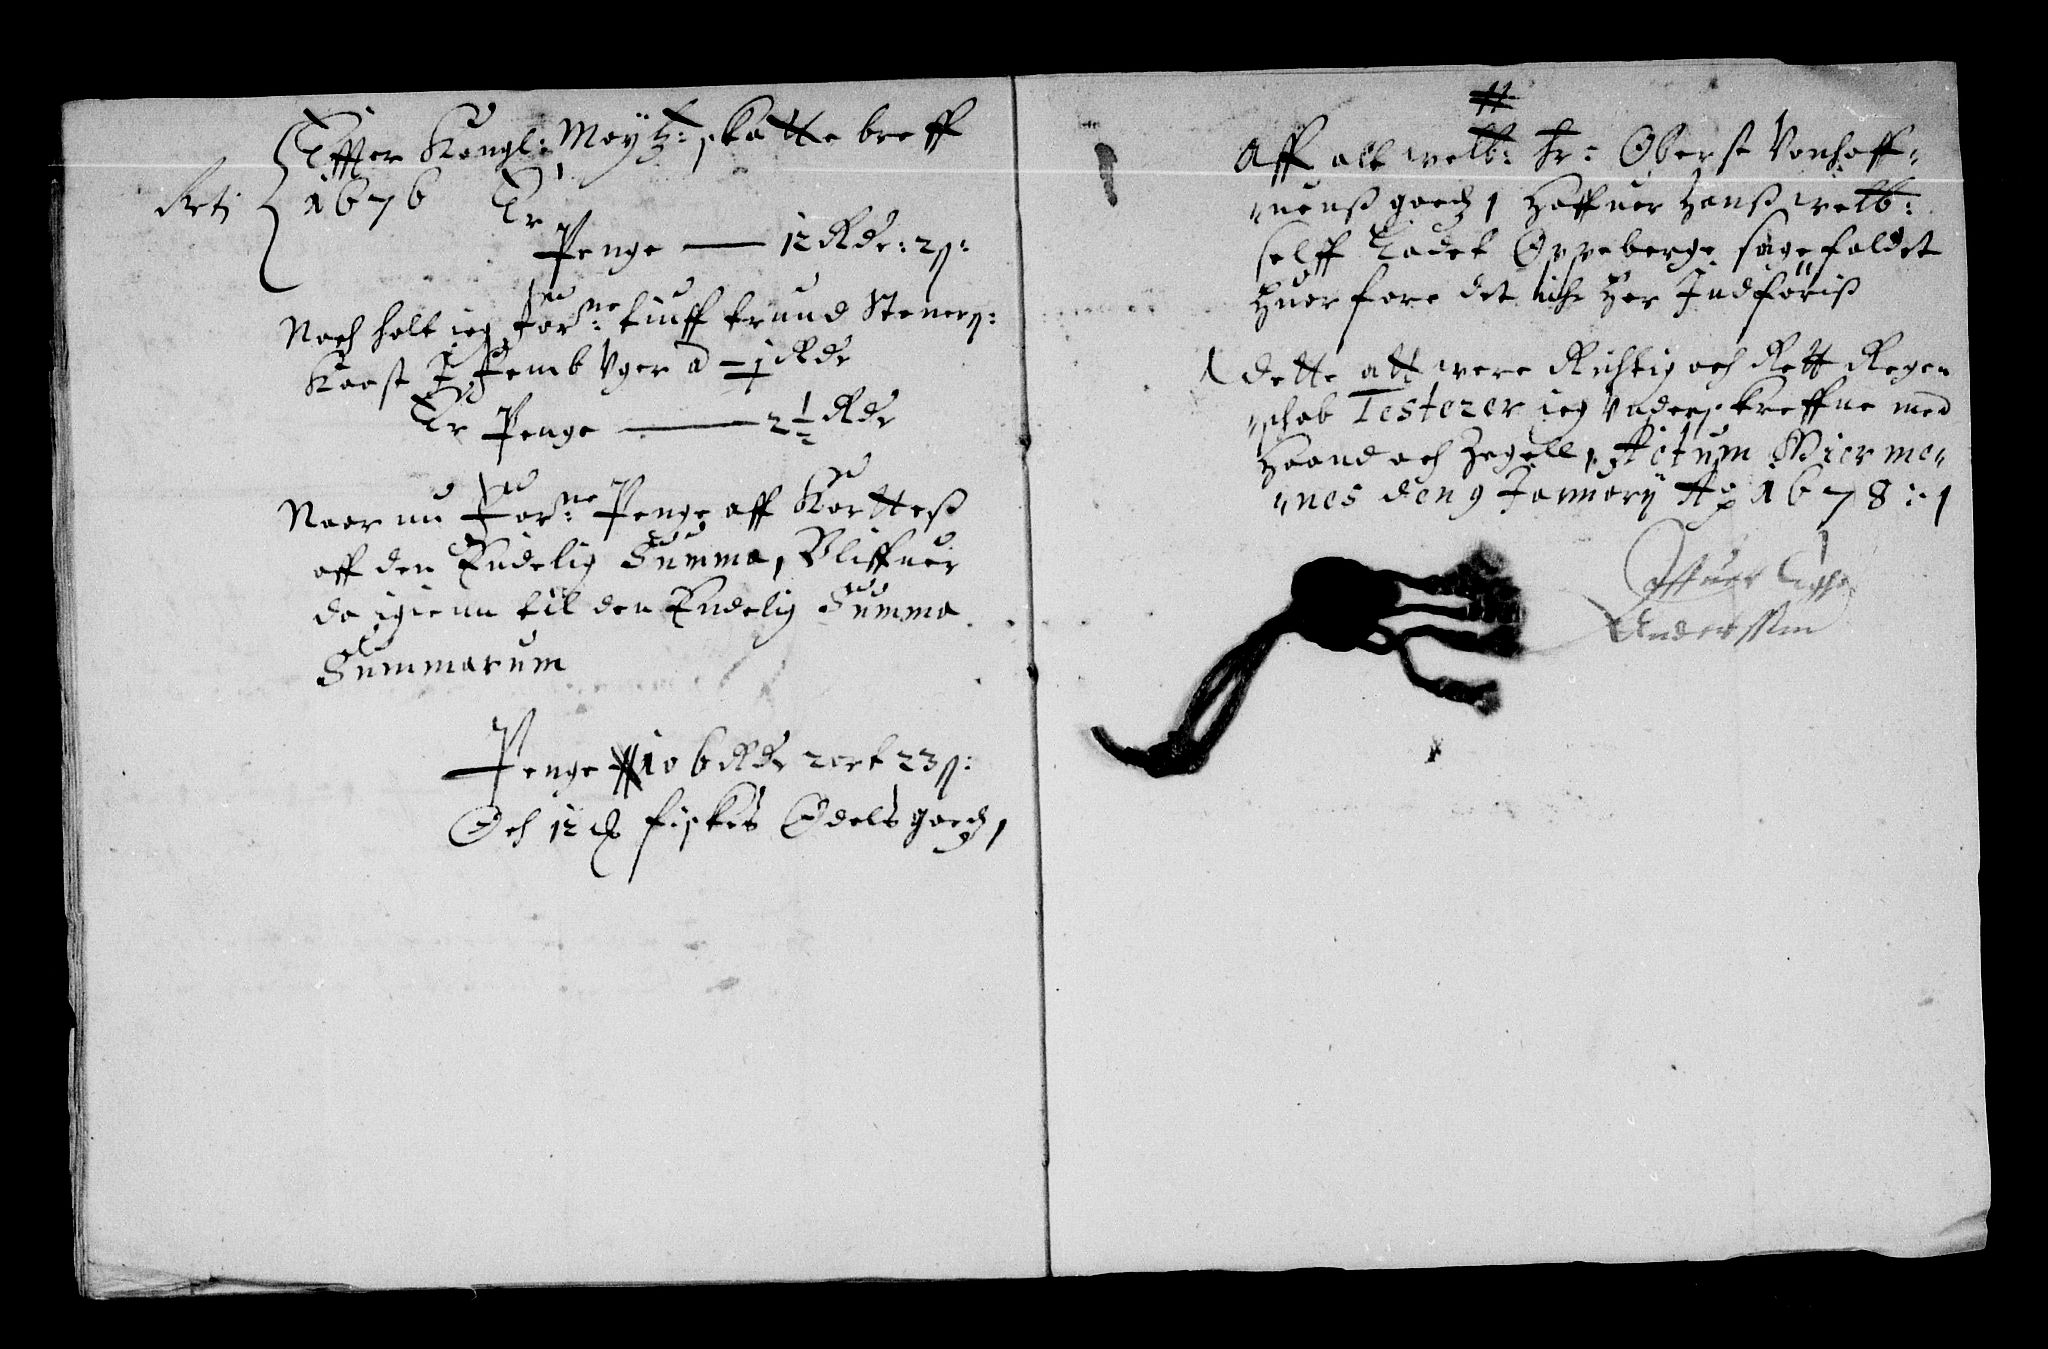 Effter Kongl: Maytz: skatte breff
1676 Er
Penge — 12 Rdr: 2 s:
Noch holt ieg for:ne tiuff trund Steners:
Kaast I femb Uger a - 1 Rdr
Er Penge — 2 1/2 Rdr
Naar nu for:ne Penge aff Kortteß
aff den Endelig Summa, Bliffuer
da igienn til den Endelig Summa
Summarum
Penge 106 Rdr 2 ort 23 s:
Och 12 fiskis Odels goedz,
Aff alt welb: Hr: Oberst Vonhoff-
nenß goedz, Haffuer Hanß welb:
selff Ladet Oppeberge sagefaldet
Huorfore det iche Her Indföriß
dette att were Richtig och Rett Regen
schab Testerer ieg Underskreffne med
Haand och Zegell, Actum
nes den 9 January Ao 1678
Anderssøn